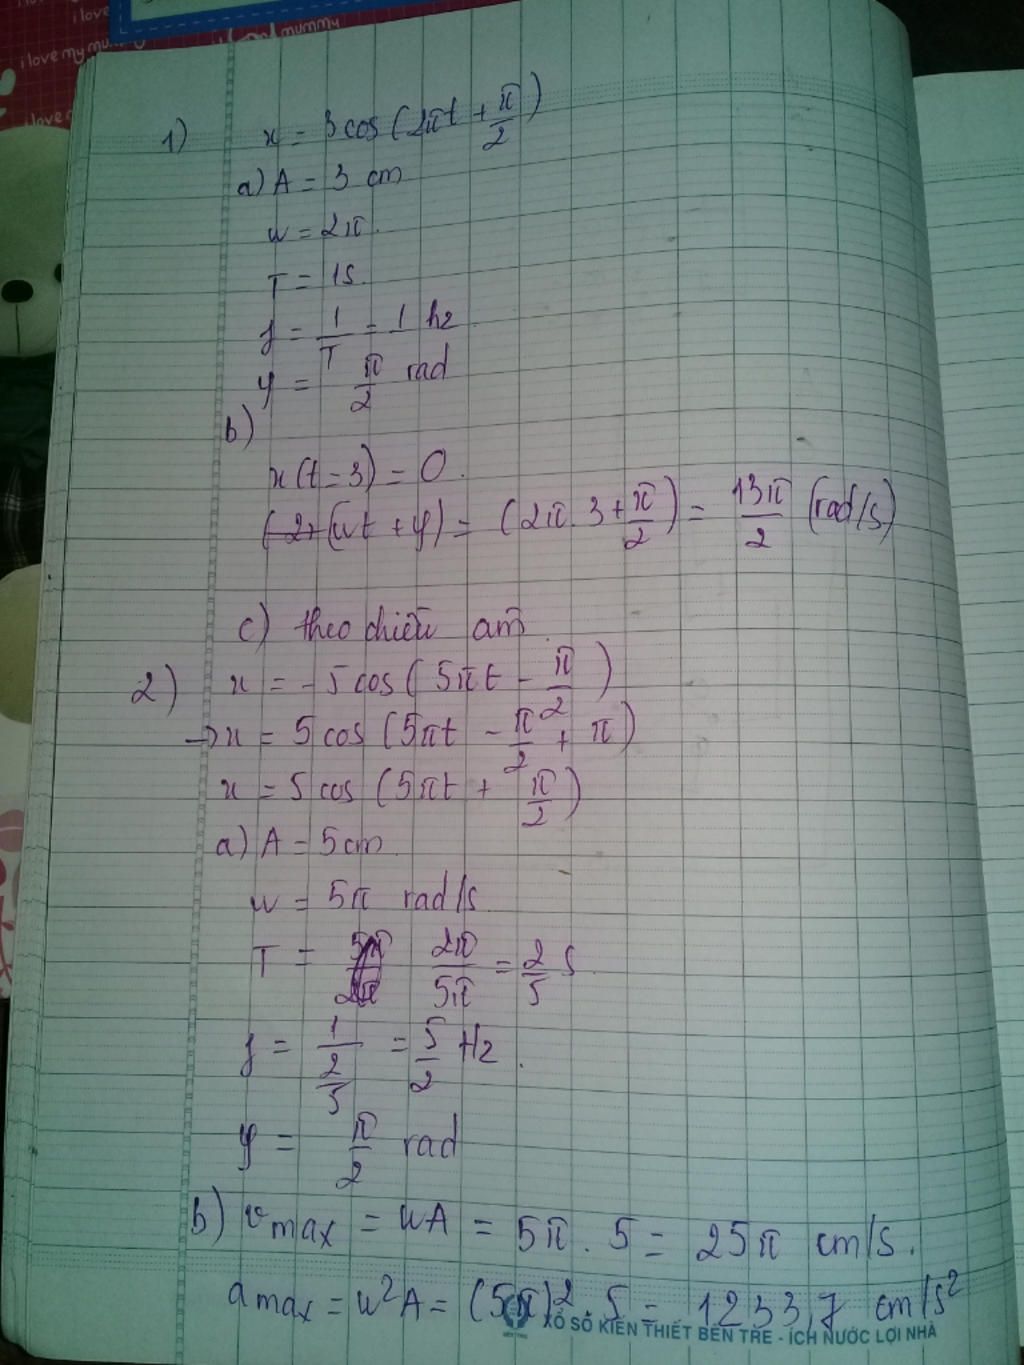 i love
i love my mu
mummy
i love
1) x = 3cos(2πt + π/2)
a) A = 3 cm
ω = 2π.
T = 1s.
f = 1/T = 1 hz
φ = π/2 rad
b)
x(t=3) = 0.
(ωt + φ) = (2π.3 + π/2) = 13π/2 (rad/s)
c) theo chiều âm.
2) x = -5cos(5πt - π/2)
→ x = 5cos(5πt - π/2 + π)
x = 5cos(5πt + π/2)
a) A = 5cm
ω = 5π rad/s
T = 2π/5π = 2/5 s.
f = 1/(2/5) = 5/2 Hz.
φ = π/2 rad
b) vmax = ωA = 5π.5 = 25π cm/s.
amax = ω²A = (5π)².5 = 1233,7 cm/s²
XỔ SỐ KIẾN THIẾT BẾN TRE - ÍCH NƯỚC LỢI NHÀ